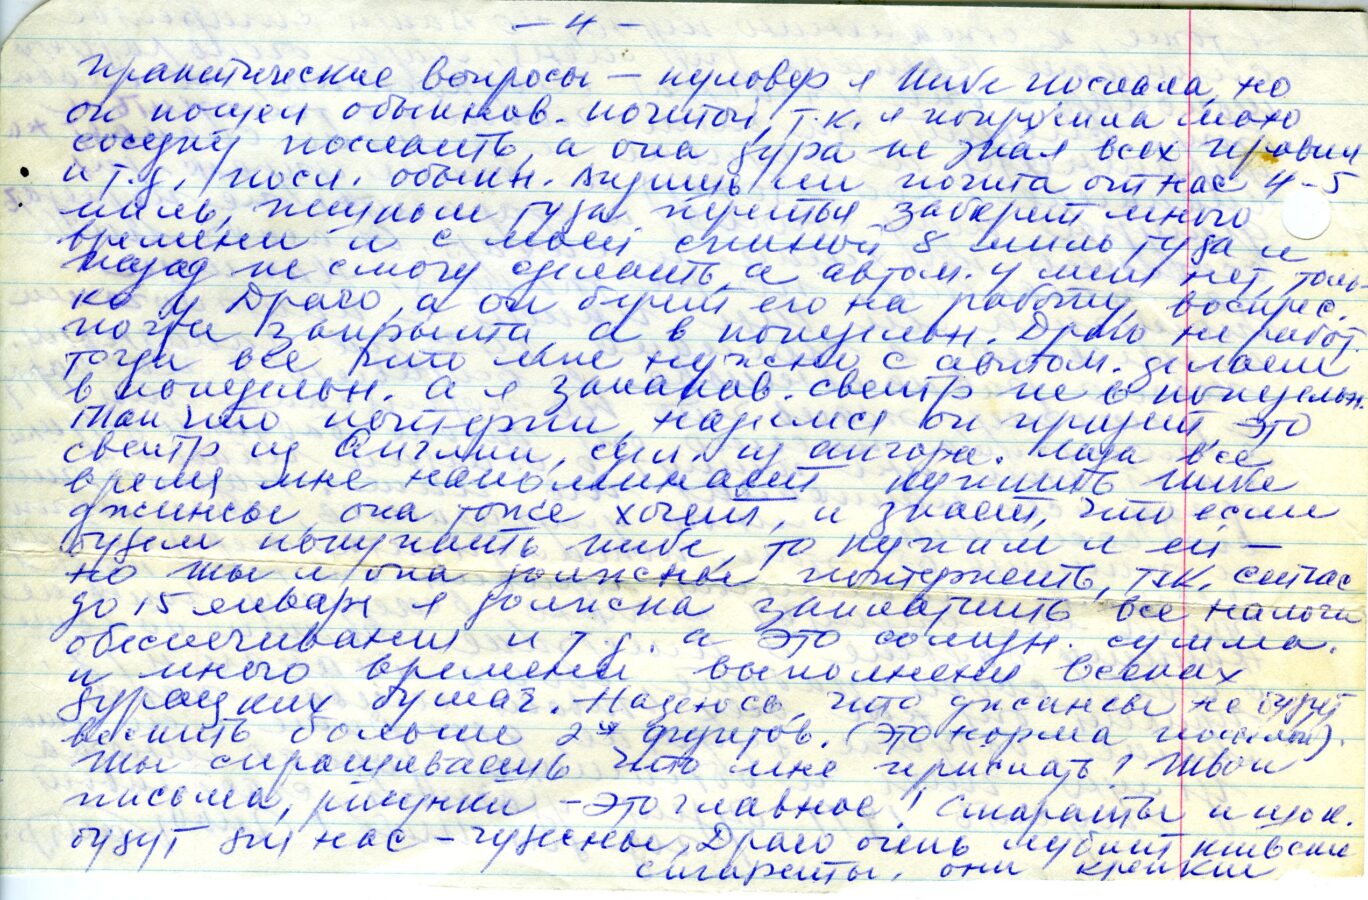 — 4 —
практические вопросы — пуловер я тебе послала, но
он пошел обыкнов. почтой, т.к. я попросила мою
соседку послать, а она дура не зная всех правил
и т.д. посл. обыкн. ли почта от нас 4-5
миль, пешком туда переться заберет много
времени и с моей спиной 8 миль туда и
назад не смогу сделать, а автом. у меня нет, толь-
ко у Драго, а он берет его на работу, воскрес.
почта закрыта а в понедельн. Драго не работ.
тогда все что мне нужно с автом. делаем
в понедельн. а я запаков. светр не в понедельн.
Так что потерпи, надеюсь он придет, это
светр из Англии, сын. из ангора. Лада все
время мне напоминает купить тебе
джинсы, она тоже хочет, и знает, что если
будем покупать тебе, то купим и ей —
но ты и она должны потерпеть, т.к. сейчас
до 15 января я должна заплатить все налоги
обеспечивания и т.д. а это солидн. сумма.
и много времени выполнения всяких
дурацких бумаг. Надеюсь, что джинсы не будут
весить больше 2х фунтов. (Это норма посылки).
Ты спрашиваешь что мне прислать? Твои
письма, рисунки — это главное! Сигареты и шок.
будут для нас — чудесны, Драго очень любит киевские
сигареты, они крепкие